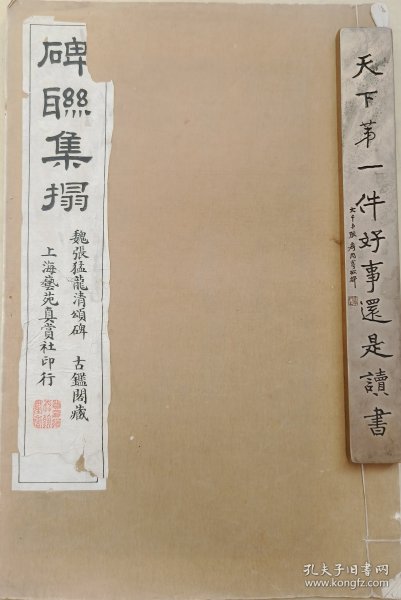 天下第一件好事還是讀書
碑聯集搨
魏張猛龍清頌碑 古鑑閣藏
上海藝苑真賞社印行
孔夫子旧书网
www.kongfz.com